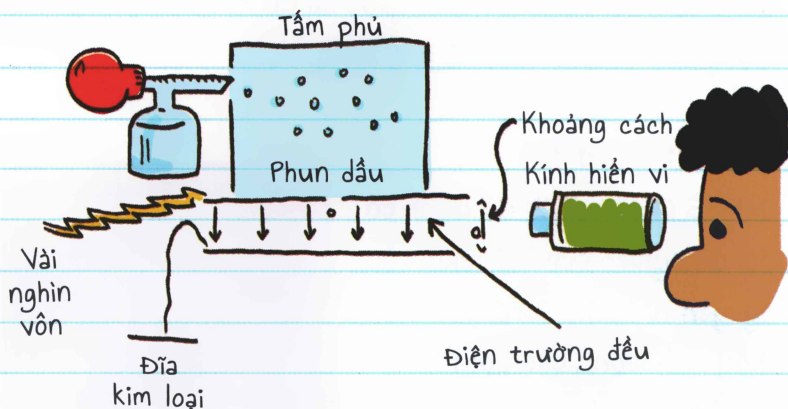 Tấm phủ
Phun dầu
Khoảng cách
Kính hiển vi
d
Vài
nghìn
vôn
Đĩa
kim loại
Điện trường đều